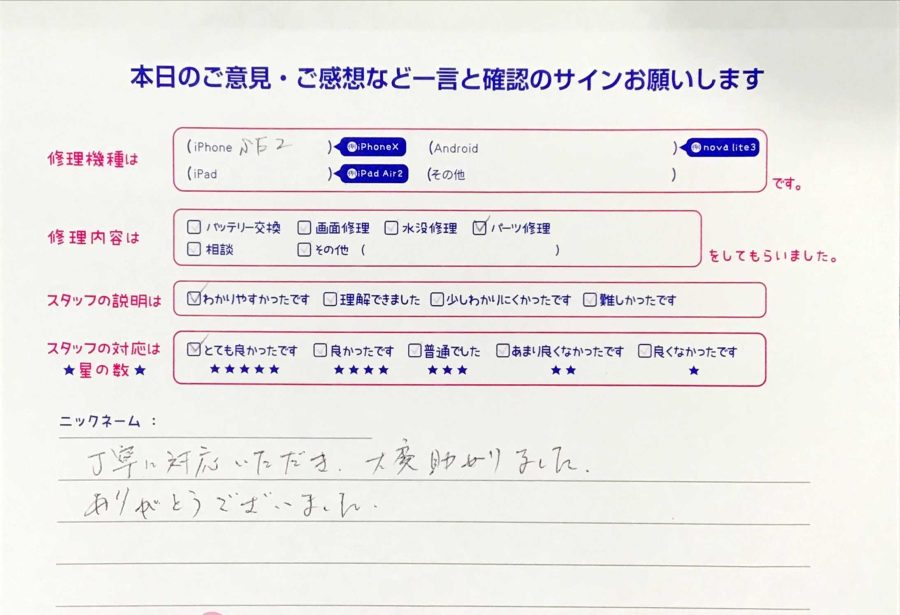 本日のご意見・ご感想など一言と確認のサインお願いします
修理機種は
(iPhone 2 ) iPhoneX (Android ) nova lite3
(iPad ) iPad Air2 (その他 ) です。
修理内容は
バッテリー交換 画面修理 水没修理 パーツ修理
相談 その他 ( ) をしてもらいました。
スタッフの説明は わかりやすかったです 理解できました 少しわかりにくかったです 難しかったです
スタッフの対応は とても良かったです 良かったです 普通でした あまり良くなかったです 良くなかったです
★星の数★ ★★★★★ ★★★★ ★★★ ★★ ★
ニックネーム：
丁寧に対応いただき、大変助かりました。
ありがとうございました。